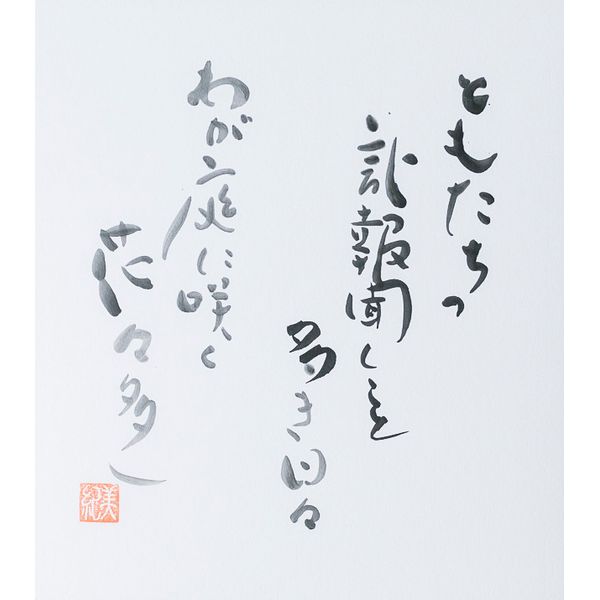 ともたちの
訃報聞くこと
多き日々
わが庭に咲く
花々多し